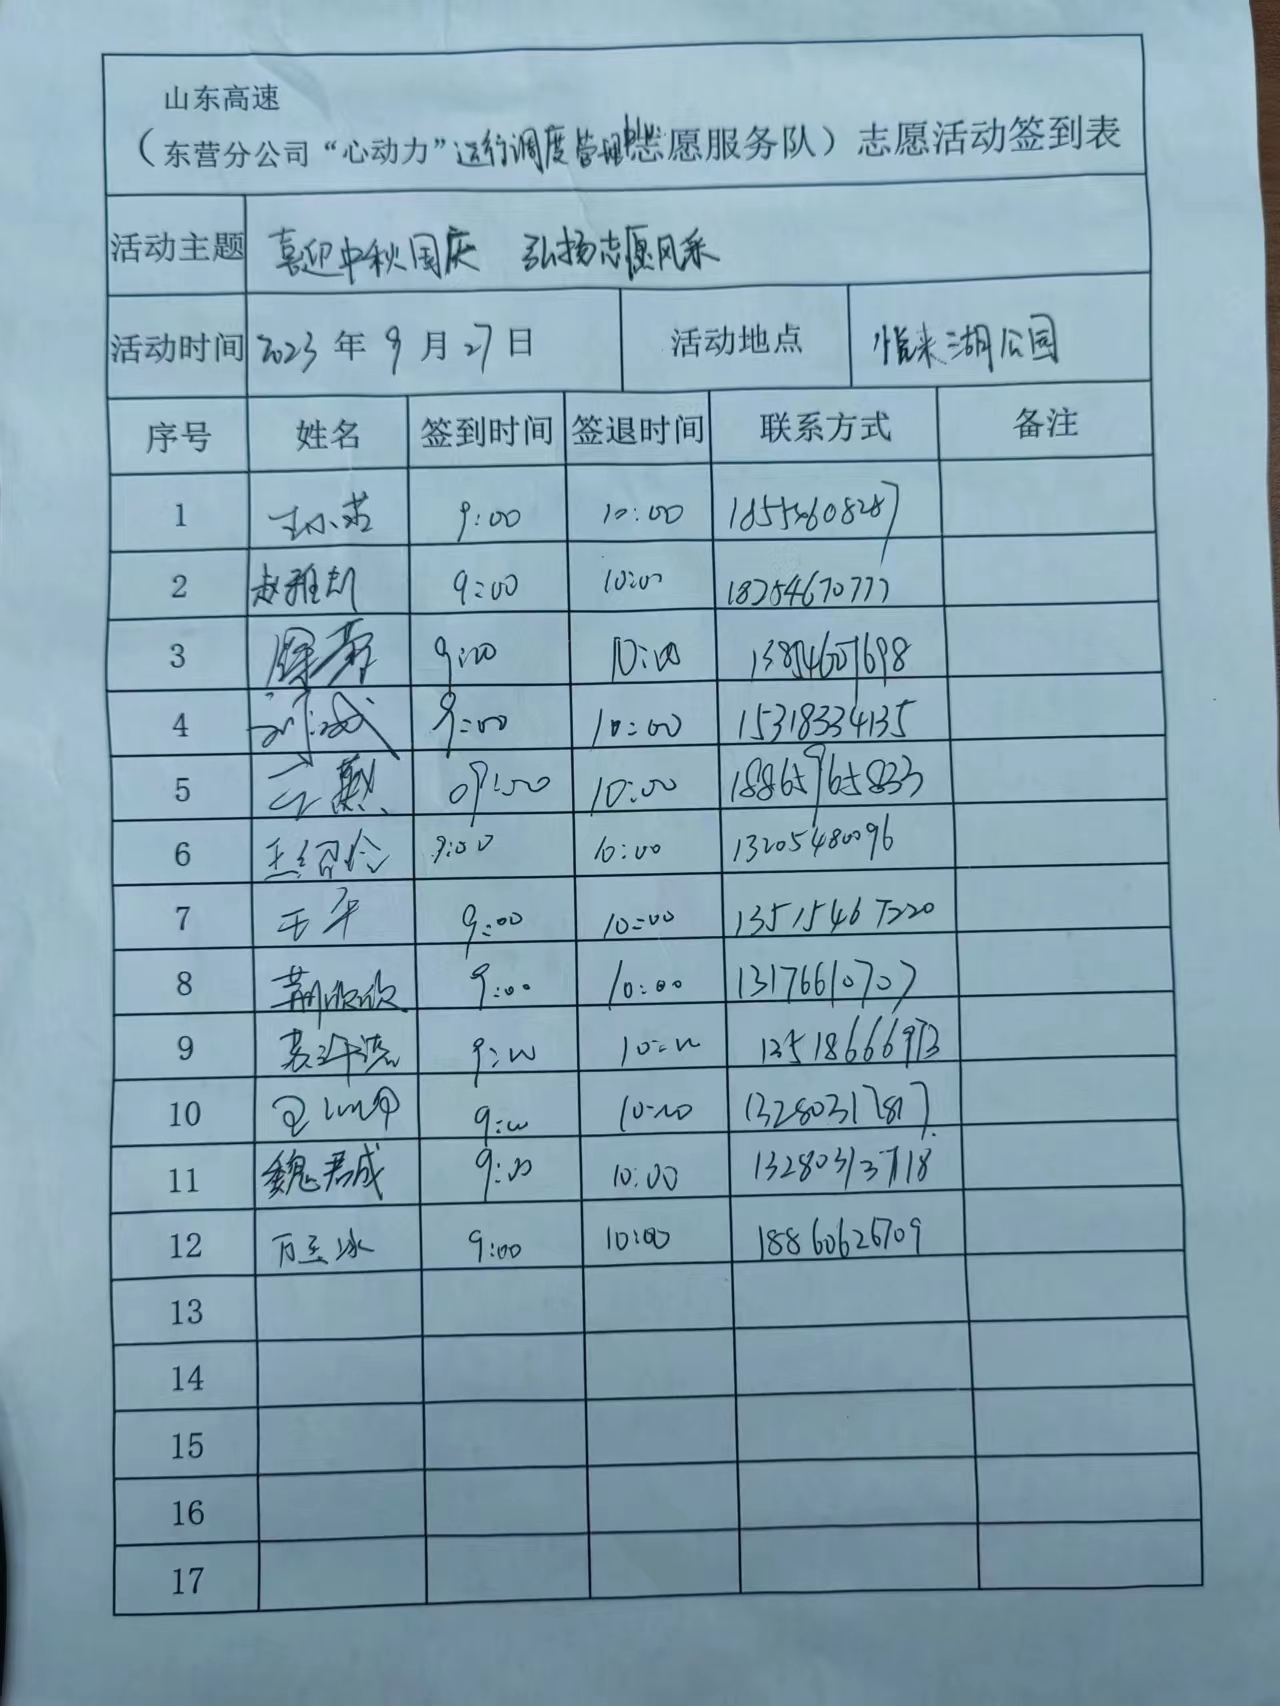 山东高速
（东营分公司“心动力”运行调度管理中心志愿服务队）志愿活动签到表
活动主题 喜迎中秋国庆 弘扬志愿风采
活动时间 2023年9月27日 活动地点 悦来湖公园
序号 姓名 签到时间 签退时间 联系方式 备注
1 9:00 10:00 18554608287
2 9:00 10:00 18254670777
3 9:00 10:00
4 9:00 10:00 15318334135
5 09:00 10:00 18865965833
6 9:00 10:00 13205480096
7 王平 9:00 10:00 13515467220
8 荆欣欣 9:00 10:00 13176610707
9 9:00 10:00 13518666973
10 9:00 10:00 13280317817
11 魏君成 9:00 10:00 13280313718
12 9:00 10:00 18860626709
13
14
15
16
17